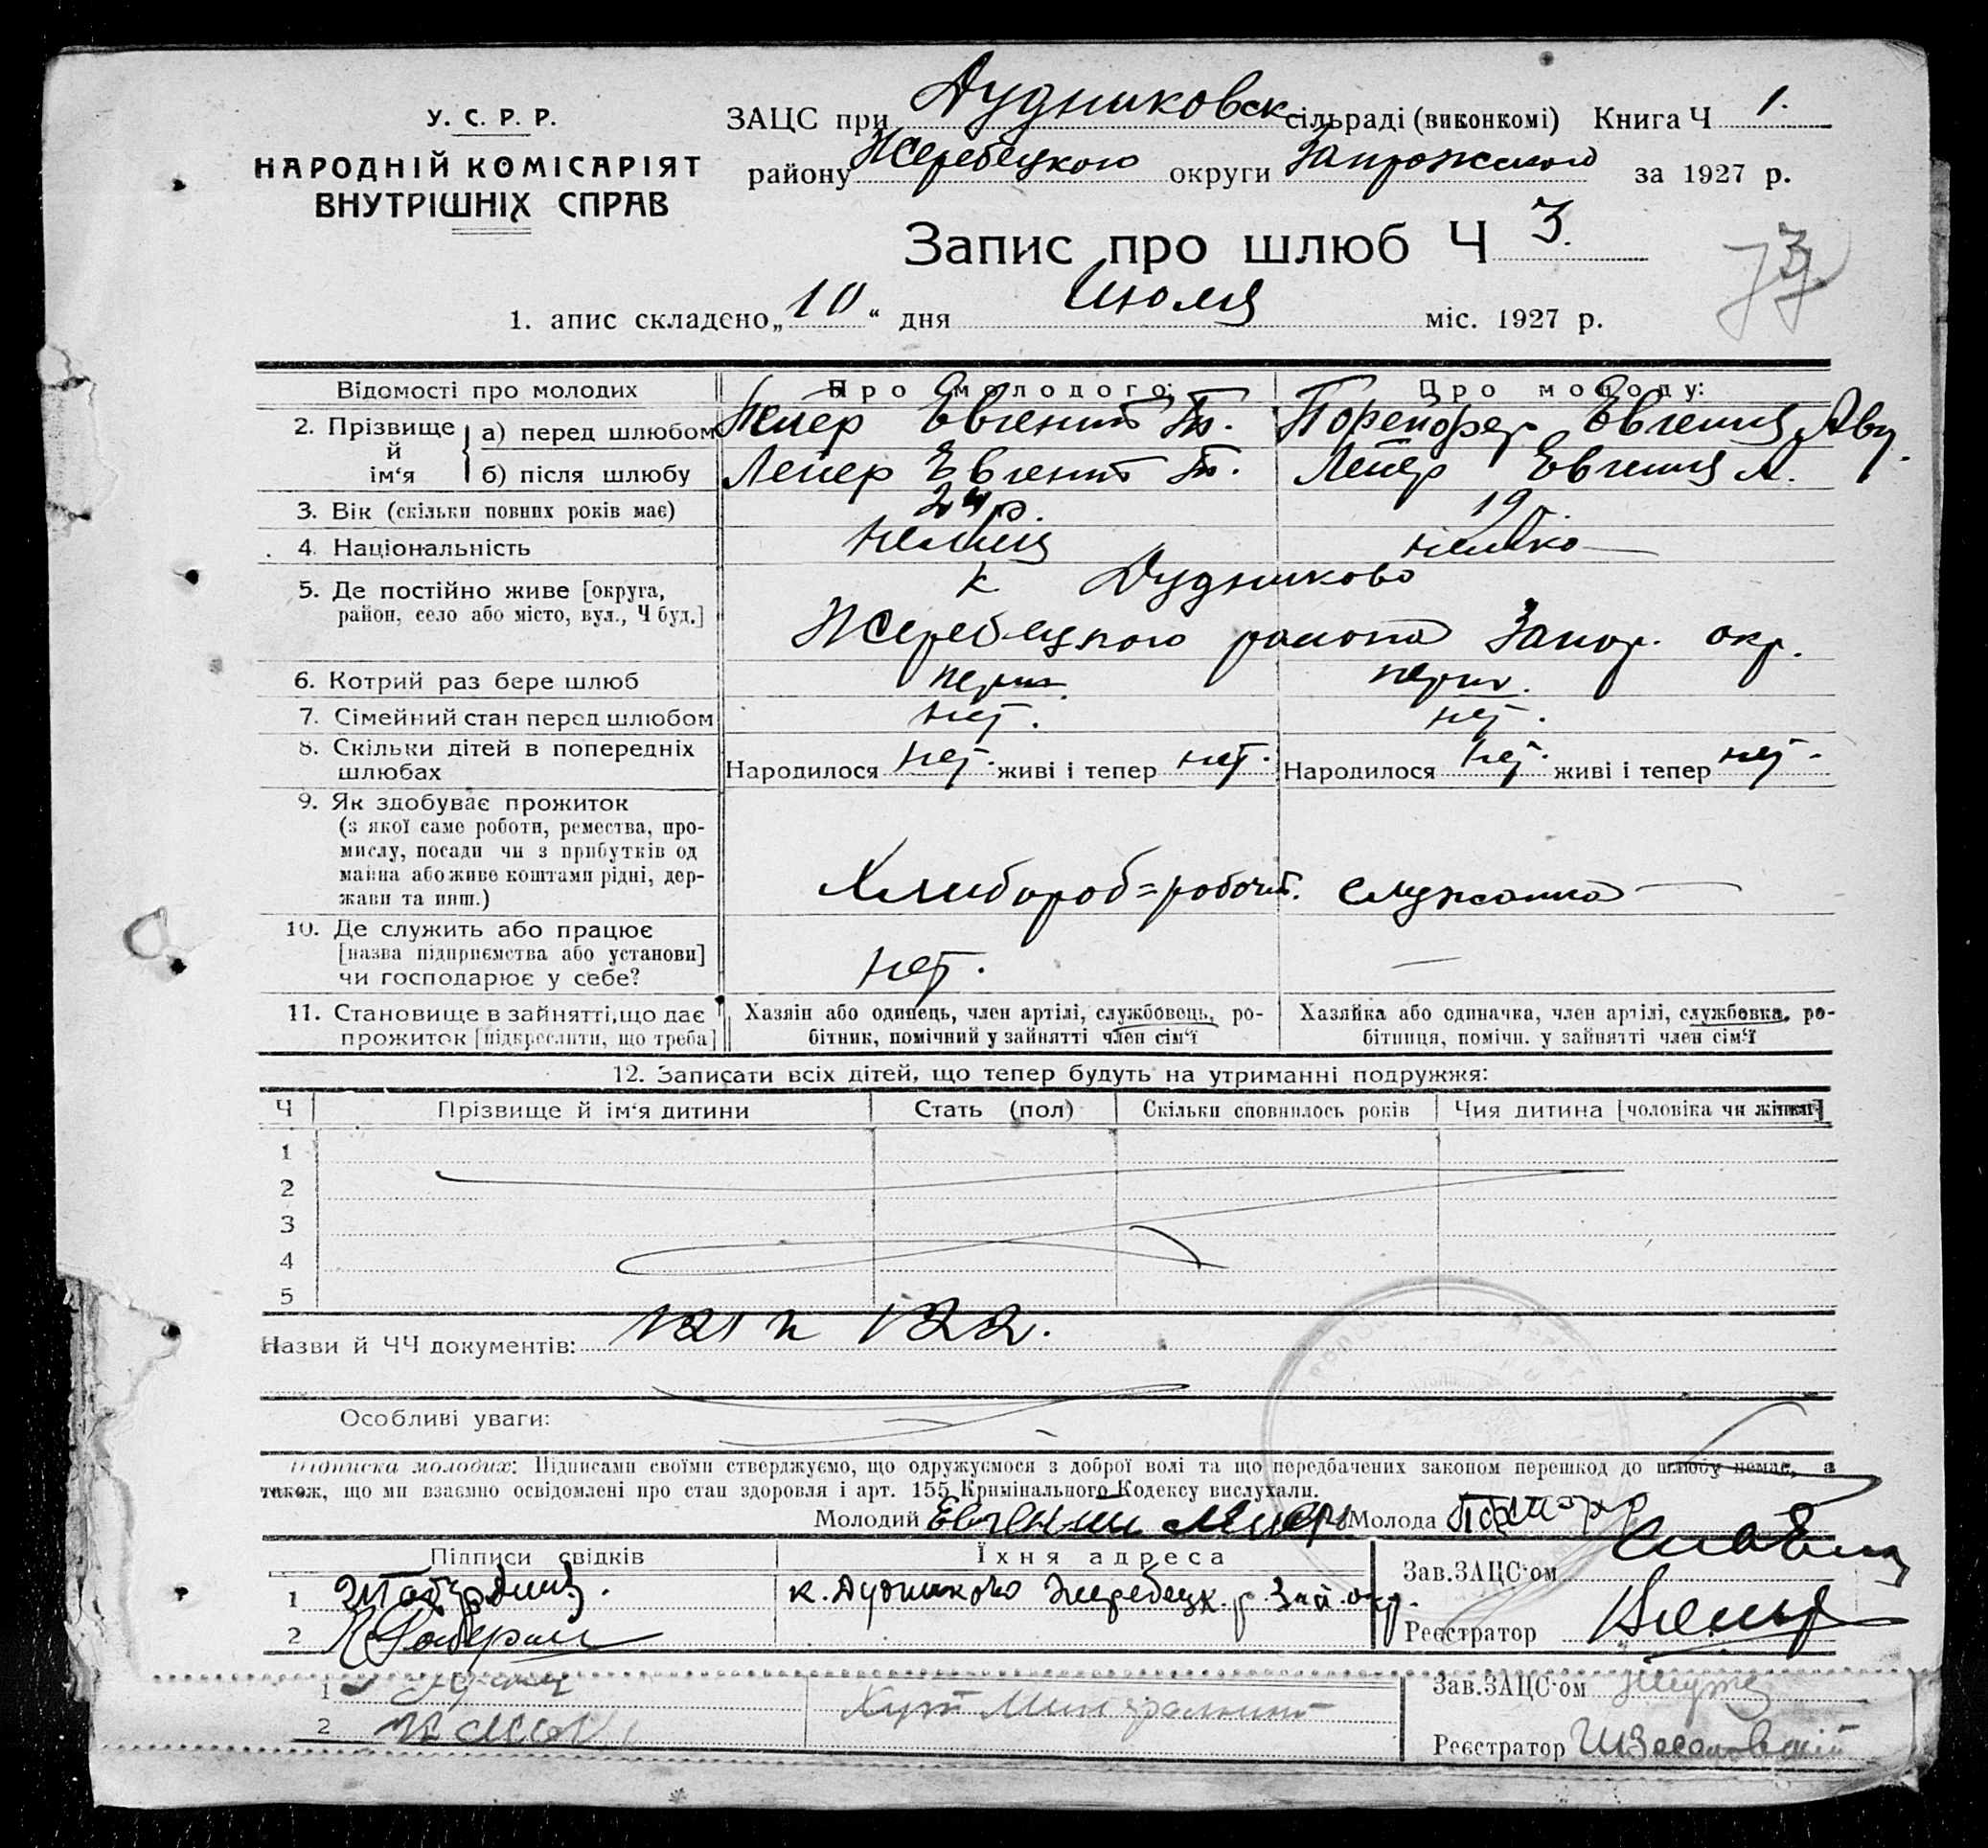 У. С. Р. Р.
НАРОДНІЙ КОМІСАРІЯТ
ВНУТРІШНІХ СПРАВ
ЗАЦС при Дудниковск сільраді (виконкомі) Книга Ч 1.
району Жеребецкого округи Запрожского за 1927 р.
Запис про шлюб Ч 3.
1. апис складено „10“ дня Июля міс. 1927 р.
Відомості про молодих
Про молодого:
Про молоду:
2. Прізвище й ім‘я
а) перед шлюбом Лейер Евгений
Евгения
б) після шлюбу Лейер Евгений
Лейер Евгения А.
3. Вік (скільки повних років має) 24 р. 19
4. Національність немец немка
5. Де постійно живе [округа, к Дудниково
район, село або місто, вул., Ч буд.] Жеребецкого района Запор. окр.
6. Котрий раз бере шлюб перш. перш.
7. Сімейний стан перед шлюбом нет. нет.
8. Скільки дітей в попередніх
шлюбах Народилося нет. живі і тепер нет. Народилося нет. живі і тепер нет.
9. Як здобуває прожиток
(з якої саме роботи, ремества, про-
мислу, посади чи з прибутків од
майна або живе коштами рідні, дер-
жави та инш.)
Хлибороб=робочий. служанка
10. Де служить або працює
[назва підприємства або установи] нет. —
чи господарює у себе?
11. Становище в зайнятті, що дає
прожиток [підкреслити, що треба]
Хазяїн або одинець, член артілі, службовець, ро-
бітник, помічний у зайнятті член сім‘ї
Хазяйка або одиначка, член артілі, службовка, ро-
бітниця, помічн. у зайнятті член сім‘ї
12. Записати всіх дітей, що тепер будуть на утриманні подружжя:
Ч Прізвище й ім‘я дитини Стать (пол) Скільки сповнилось років Чия дитина [чоловіка чи жінки]
1
2
3
4
5
Назви й ЧЧ документів: 121 и 122.
Особливі уваги:
Підписка молодих: Підписами своїми стверджуємо, що одружуємося з доброї волі та що передбачених законом перешкод до шлюбу немає, а
також, що ми взаємно освідомлені про стан здоровля і арт. 155 Кримінального Кодексу вислухали.
Молодий Евгений Молода
Підписи свідків Їхня адреса
Зав.ЗАЦС‘ом
1 к. Дудниково Жеребецк. р. Зап. окр.
2 Реєстратор
1 Зав.ЗАЦС‘ом
2 Хут
Реєстратор